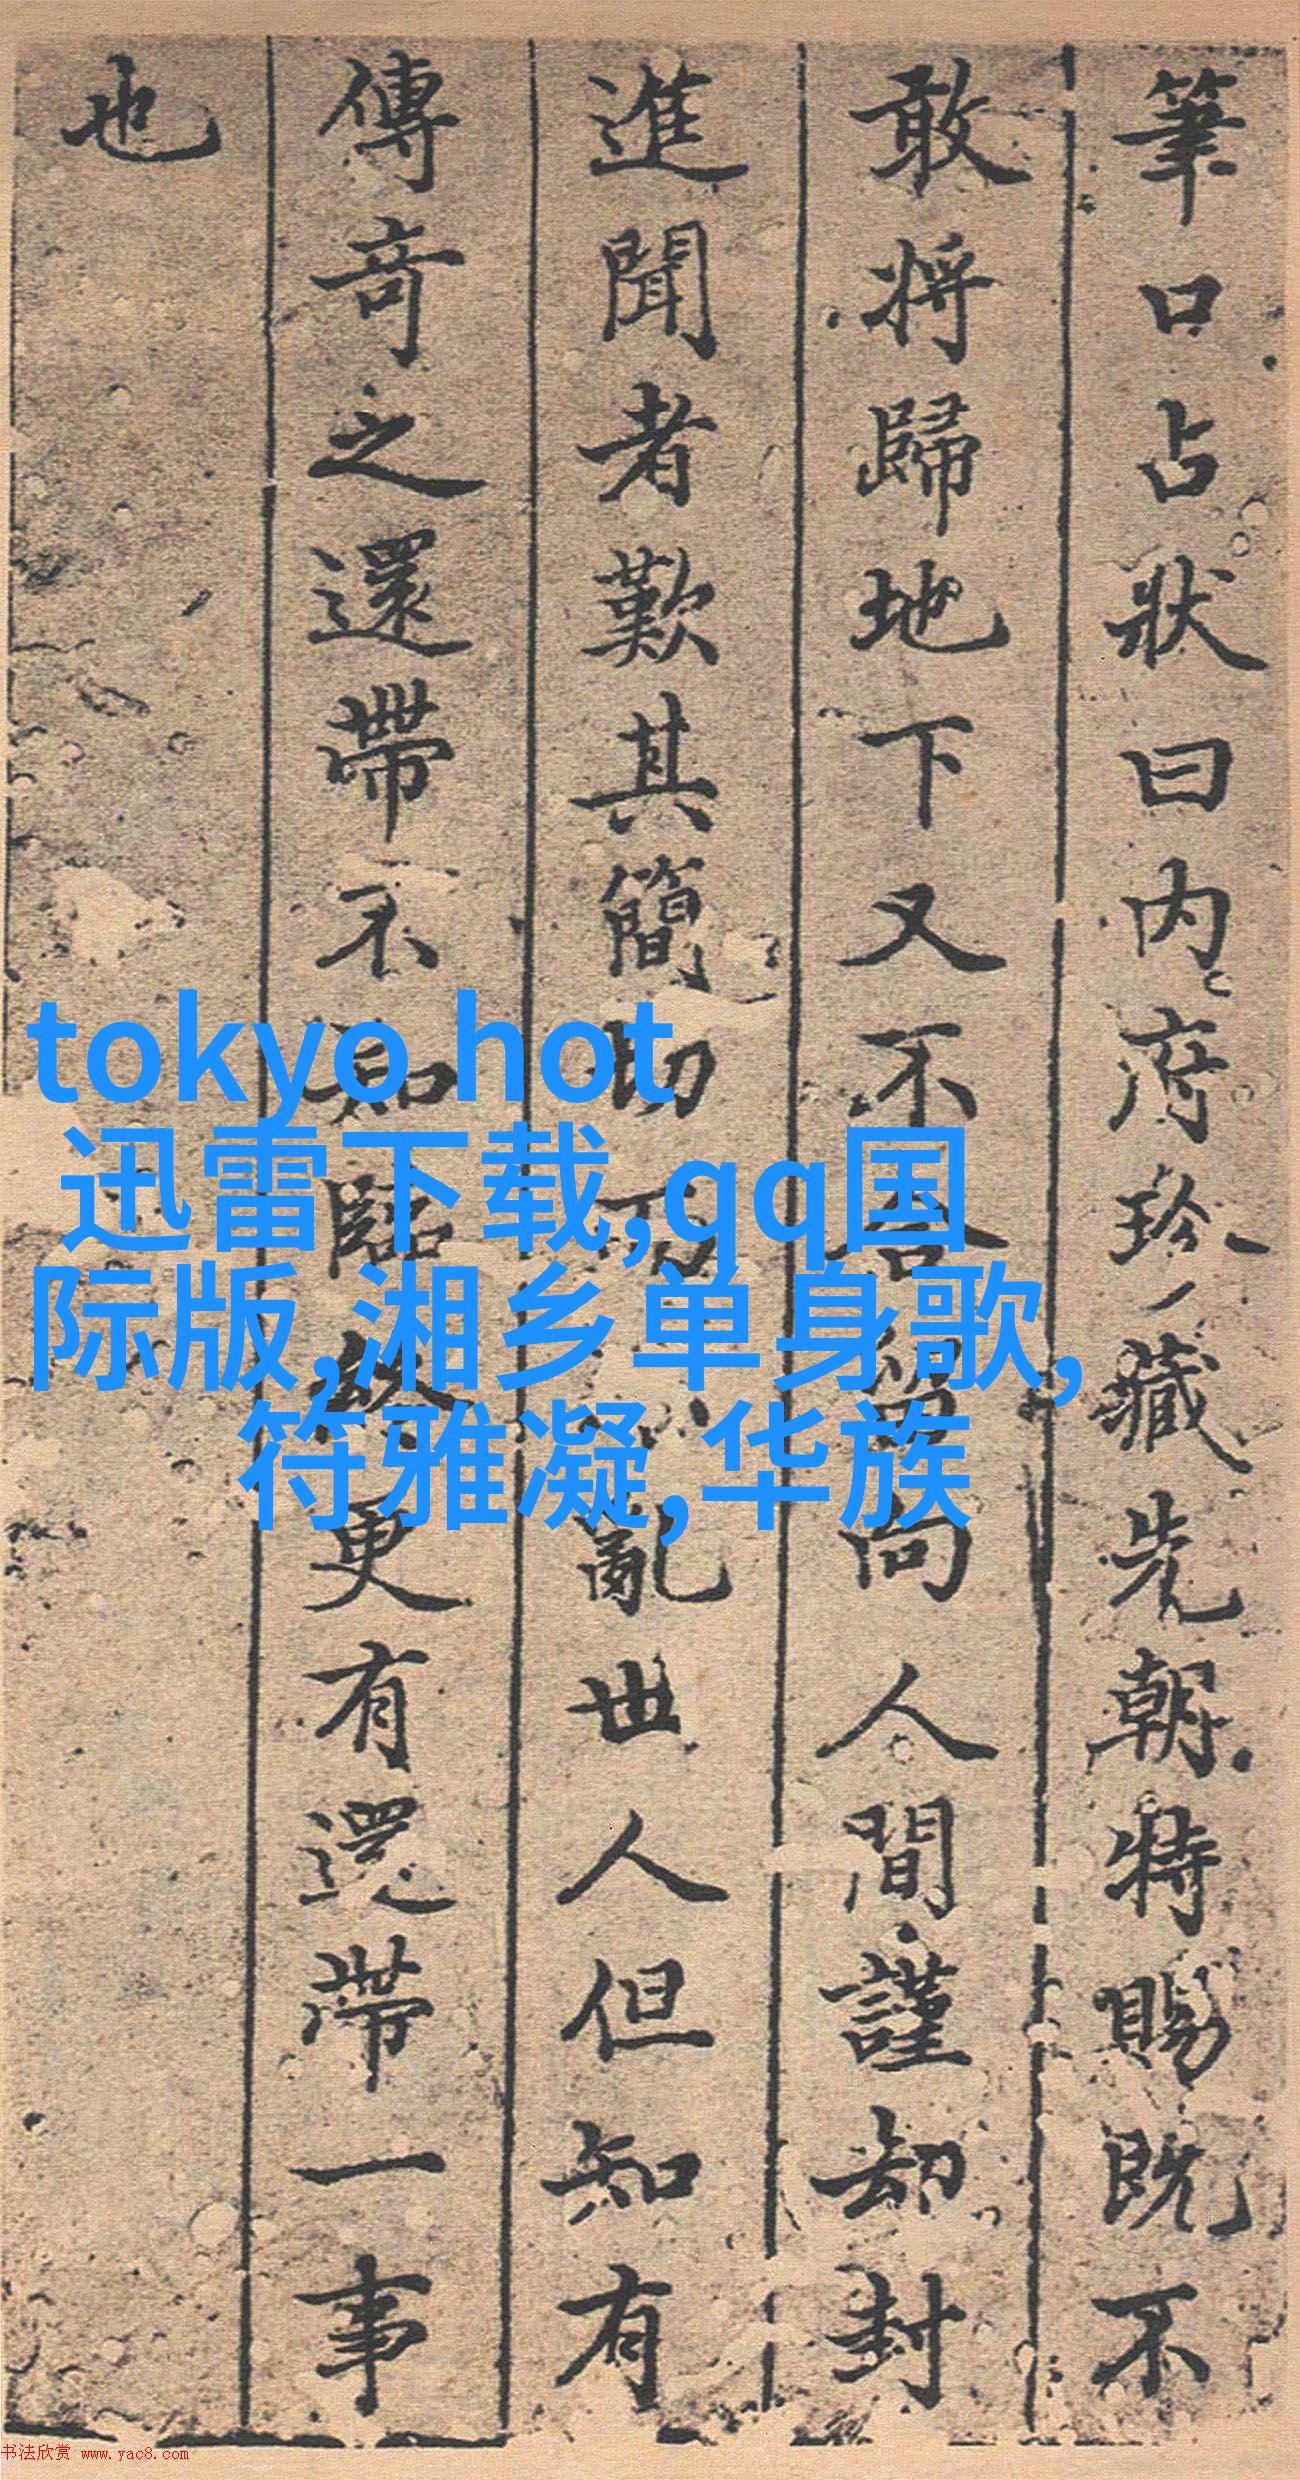 筆口占狀曰内府珍藏先朝特賜既不
敢將歸地下又不合留向人間謹却封
進聞者歎其簡切而不亂世人但知有
傳奇之還帶不知臨終更有還帶一事
也
tokyo hot
迅雷下载,qq国
际版,湘乡单身歌,
符雅凝,华族
书法欣赏 www.yac8.com